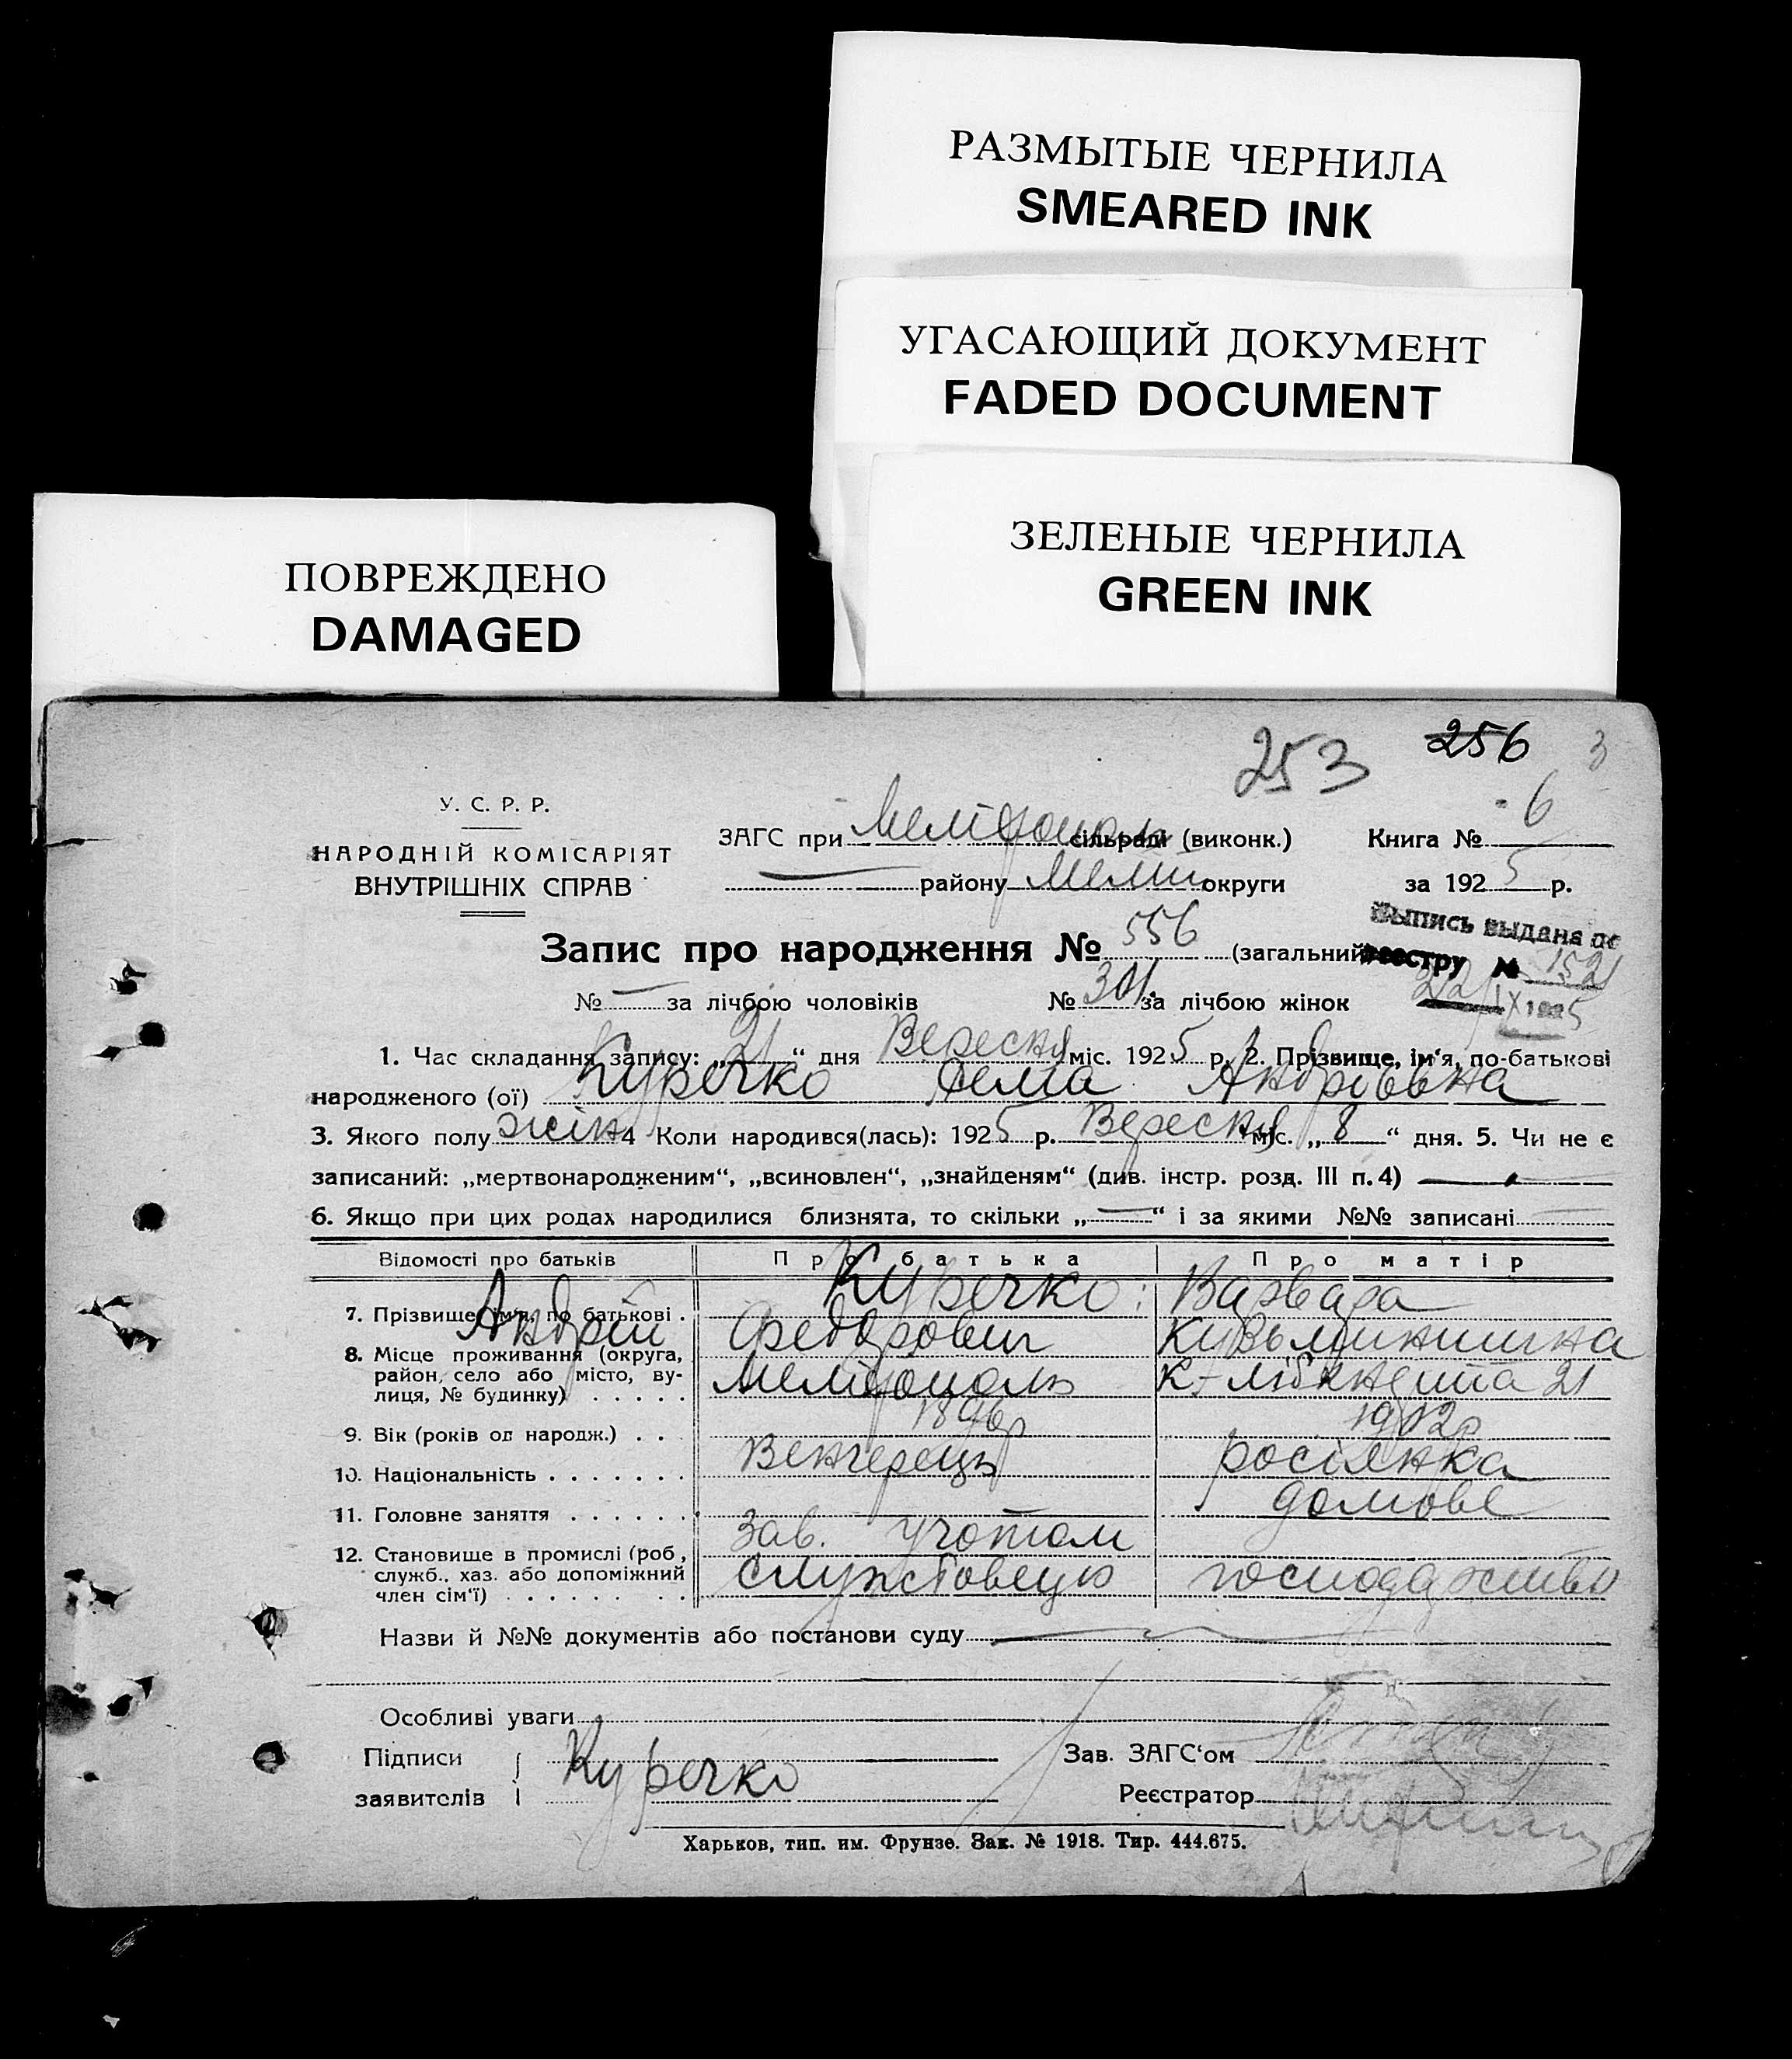 РАЗМЫТЫЕ ЧЕРНИЛА
SMEARED INK
УГАСАЮЩИЙ ДОКУМЕНТ
FADED DOCUMENT
ЗЕЛЕНЫЕ ЧЕРНИЛА
GREEN INK
ПОВРЕЖДЕНО
DAMAGED
253 256 3
У. С. Р. Р.
НАРОДНІЙ КОМІСАРІЯТ
ВНУТРІШНІХ СПРАВ
ЗАГС при Мелітополь сільраді (виконк.) Книга № 6
— району Меліт округи за 1925 р.
Выпись выдана по
реестру № 1521
22/IX 1925
Запис про народження № 556 (загальний
№ — за лічбою чоловіків № 301 за лічбою жінок
1. Час складання запису: „21“ дня Вересня міс. 1925 р. 2. Прізвище, ім‘я, по-батькові
народженого (ої) Куречко Андріївна
3. Якого полу жін 4 Коли народився(лась): 1925 р. Вересня міс. „8“ дня. 5. Чи не є
записаний: „мертвонародженим“, „всиновлен“, „знайденям“ (див. інстр. розд. III п. 4) —
6. Якщо при цих родах народилися близнята, то скільки „—“ і за якими №№ записані —
Відомості про батьків Про батька Про матір
7. Прізвище, ім‘я, по батькові . Куречко: Варвара
Андрій Федорович Кузьминишна
8. Місце проживання (округа,
район, село або місто, ву-
лиця, № будинку) . . . . . Мелітополь К-Лібкнехта 21
9. Вік (років од народж.) . . . 1896 р 1902 р
10. Національність . . . . . . . Венгерець росіянка
11. Головне заняття . . . . . . Зав. учотом домове
12. Становище в промислі (роб,
служб., хаз. або допоміжний
член сім‘ї) . . . . . . . . службовець господарство
Назви й №№ документів або постанови суду —
Особливі уваги
Підписи
заявителів Куречко
Зав. ЗАГС‘ом
Реєстратор
Харьков, тип. им. Фрунзе. Зак. № 1918. Тир. 444.675.